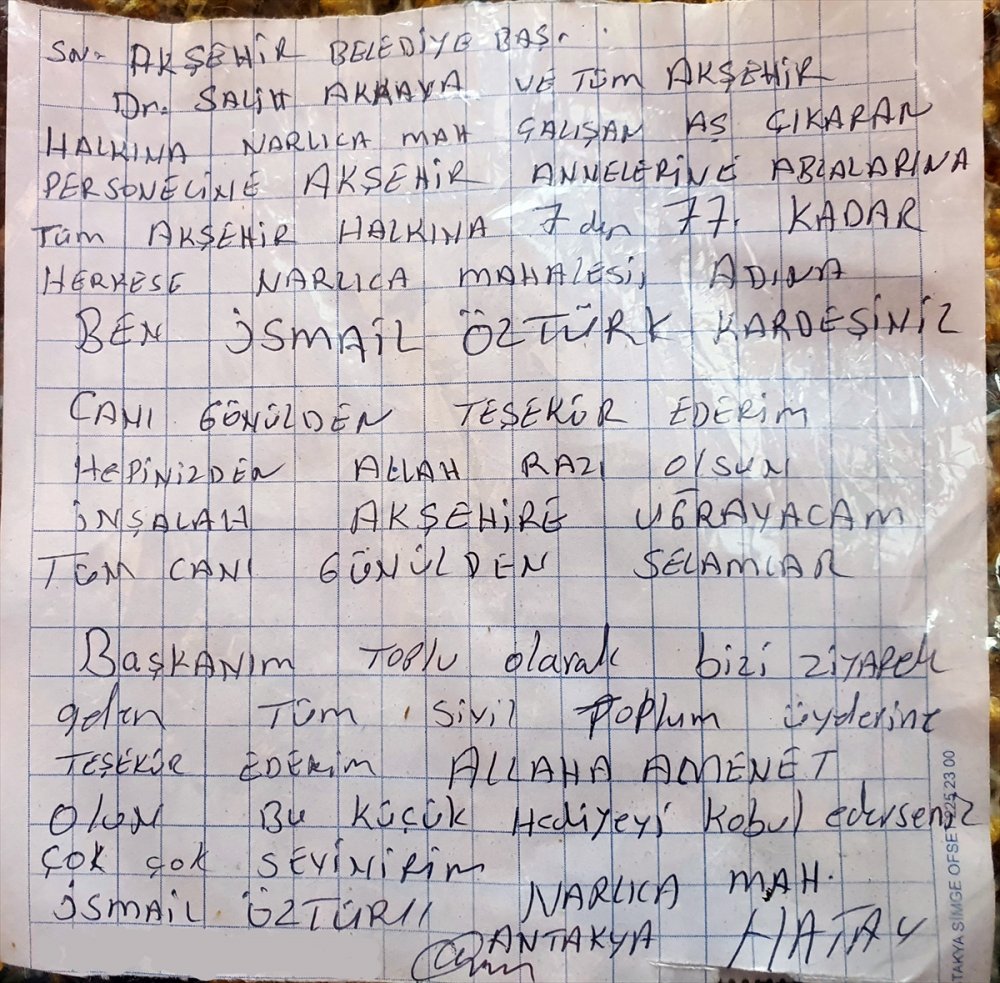 SN. AKŞEHİR BELEDİYE BAŞ.
Dr. SALİH AKKAYA VE TÜM AKŞEHİR
HALKINA NARLICA MAH ÇALIŞAN AŞ ÇIKARAN
PERSONELİNE AKŞEHİR ANNELERİNE ABLALARINA
TÜM AKŞEHİR HALKINA 7 den 77. KADAR
HERKESE NARLICA MAHALESİ, ADINA
BEN İSMAİL ÖZTÜRK KARDEŞİNİZ
CANI GÖNÜLDEN TEŞEKÜR EDERİM
HEPİNİZDEN ALLAH RAZI OLSUN
İNŞALAH AKŞEHİRE UĞRAYACAM
TÜM CANI GÖNÜLDEN SELAMLAR
BAŞKANIM TOPLU olarak bizi ZİYARETE
gelen TÜM Sivil Poplum üyelerine
TEŞEKÜR EDERİM ALLAHA AMENET
OLUN Bu KÜÇÜK Hediyeyi Kabul ederseniz
ÇOK ÇOK SEVİNİRİM
NARLICA MAH.
İSMAİL ÖZTÜRK
ANTAKYA HATAY
TAKYA SİMGE OFSET 225 23 00